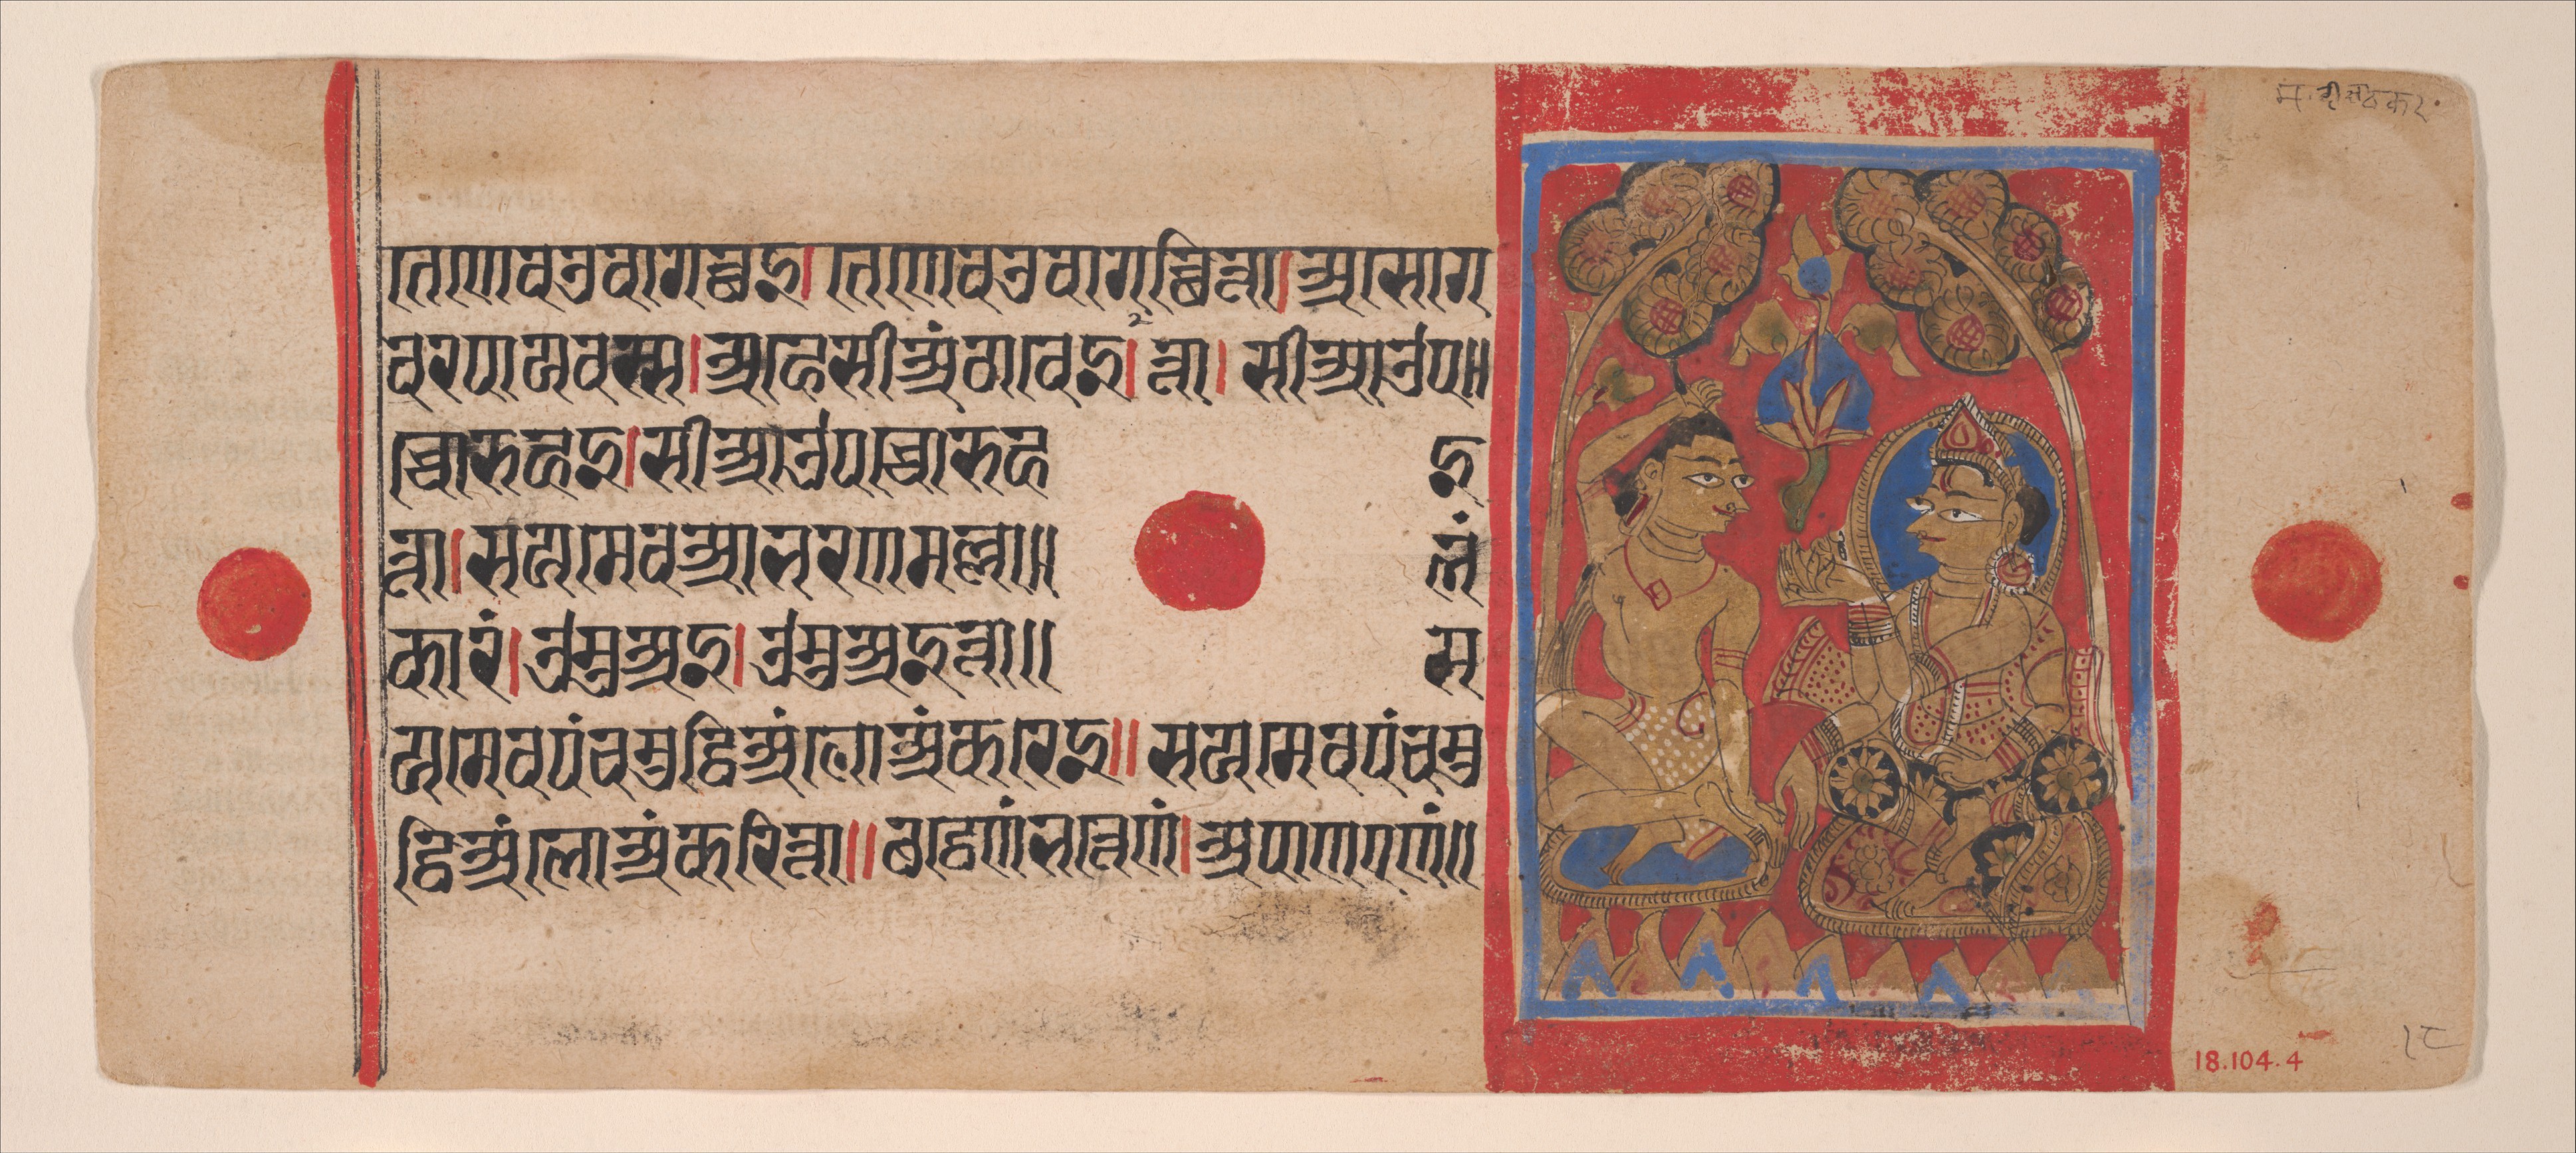 तेणेव उवागच्छइ। तेणेव उवागच्छित्ता। असोग
वरपायवस्स। अहे सीअं ठावेइ।२ त्ता। सीआउ प॥
च्चोरुहइ। सीआउ पच्चोरुह इ
त्ता। सयमेव आभरणमल्ला॥ लं
कारं। उम्मुअइ। उम्मुअइत्ता॥ स
यमेव पंचमुट्ठिअं लोअं करेइ॥ सयमेव पंचमु
ट्ठिअं लोअं करित्ता॥ छट्ठेणं भत्तेणं। अपाणएणं॥
१८
18.104.4